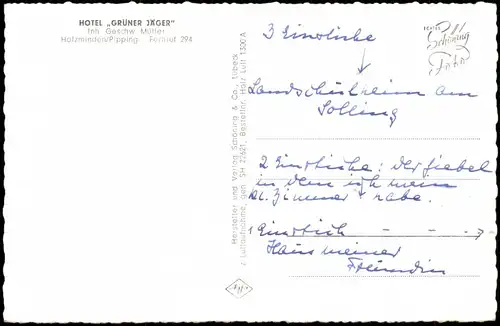 HOTEL „GRÜNER JÄGER"
Inh. Geschw. Müller
Holzminden/Pipping Fernruf 294
Hersteller und Verlag Schöning & Co., Lübeck
Luftaufnahme, gen. SH 22621, Bestellnr. Holz Luft 1300 A
ECHTE
Schöning
Foto
3 Einstiche
Landschulheim am
Solling
2 Einstiche: der Giebel
in dem ich mein
Zimmer habe.
1 Einstich
Haus meiner
Freundin